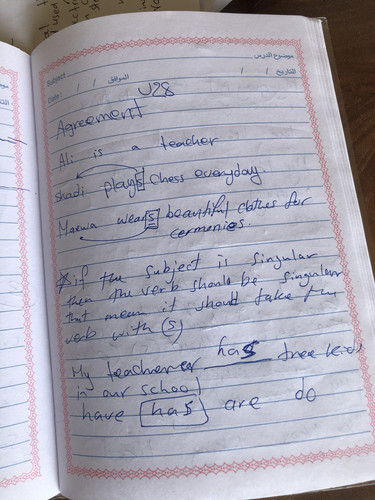 موضوع الدرس
Subject
التاريخ / / الموافق / / Date:
U98
Agreement
Ali is a teacher
Shadi plays Chess everyday.
Marwa wears beautiful clothes for
cermenies.
if the subject is singular
then the verb should be singular
that mean it should take the
verb with (s)
My teacher has three kids
in our school
have has are do